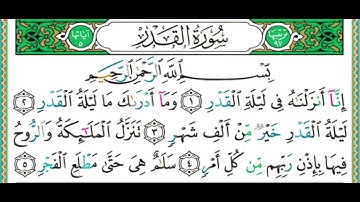 ترتيبها ٩٧ سُورَةُ القَدْرِ آياتها ٥
بِسْمِ اللَّهِ الرَّحْمَنِ الرَّحِيمِ
إِنَّآ أَنزَلْنَٰهُ فِى لَيْلَةِ ٱلْقَدْرِ ١ وَمَآ أَدْرَىٰكَ مَا لَيْلَةُ ٱلْقَدْرِ ٢
لَيْلَةُ ٱلْقَدْرِ خَيْرٌ مِّنْ أَلْفِ شَهْرٍ ٣ تَنَزَّلُ ٱلْمَلَٰٓئِكَةُ وَٱلرُّوحُ
فِيهَا بِإِذْنِ رَبِّهِم مِّن كُلِّ أَمْرٍ ٤ سَلَٰمٌ هِىَ حَتَّىٰ مَطْلَعِ ٱلْفَجْرِ ٥